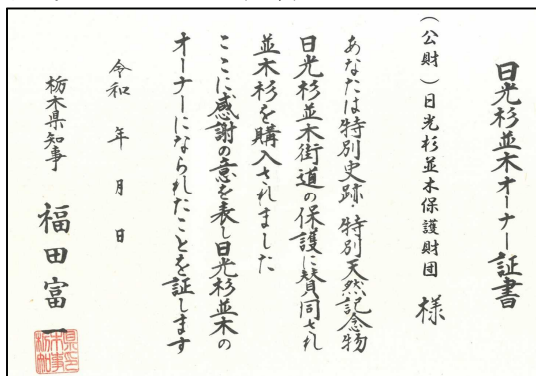 日光杉並木オーナー証書
(公財)日光杉並木保護財団 様
あなたは特別史跡・特別天然記念物
日光杉並木街道の保護に賛同され
並木杉を購入されました
ここに感謝の意を表し日光杉並木の
オーナーになられたことを証します
令和 年 月 日
栃木県知事 福田富一